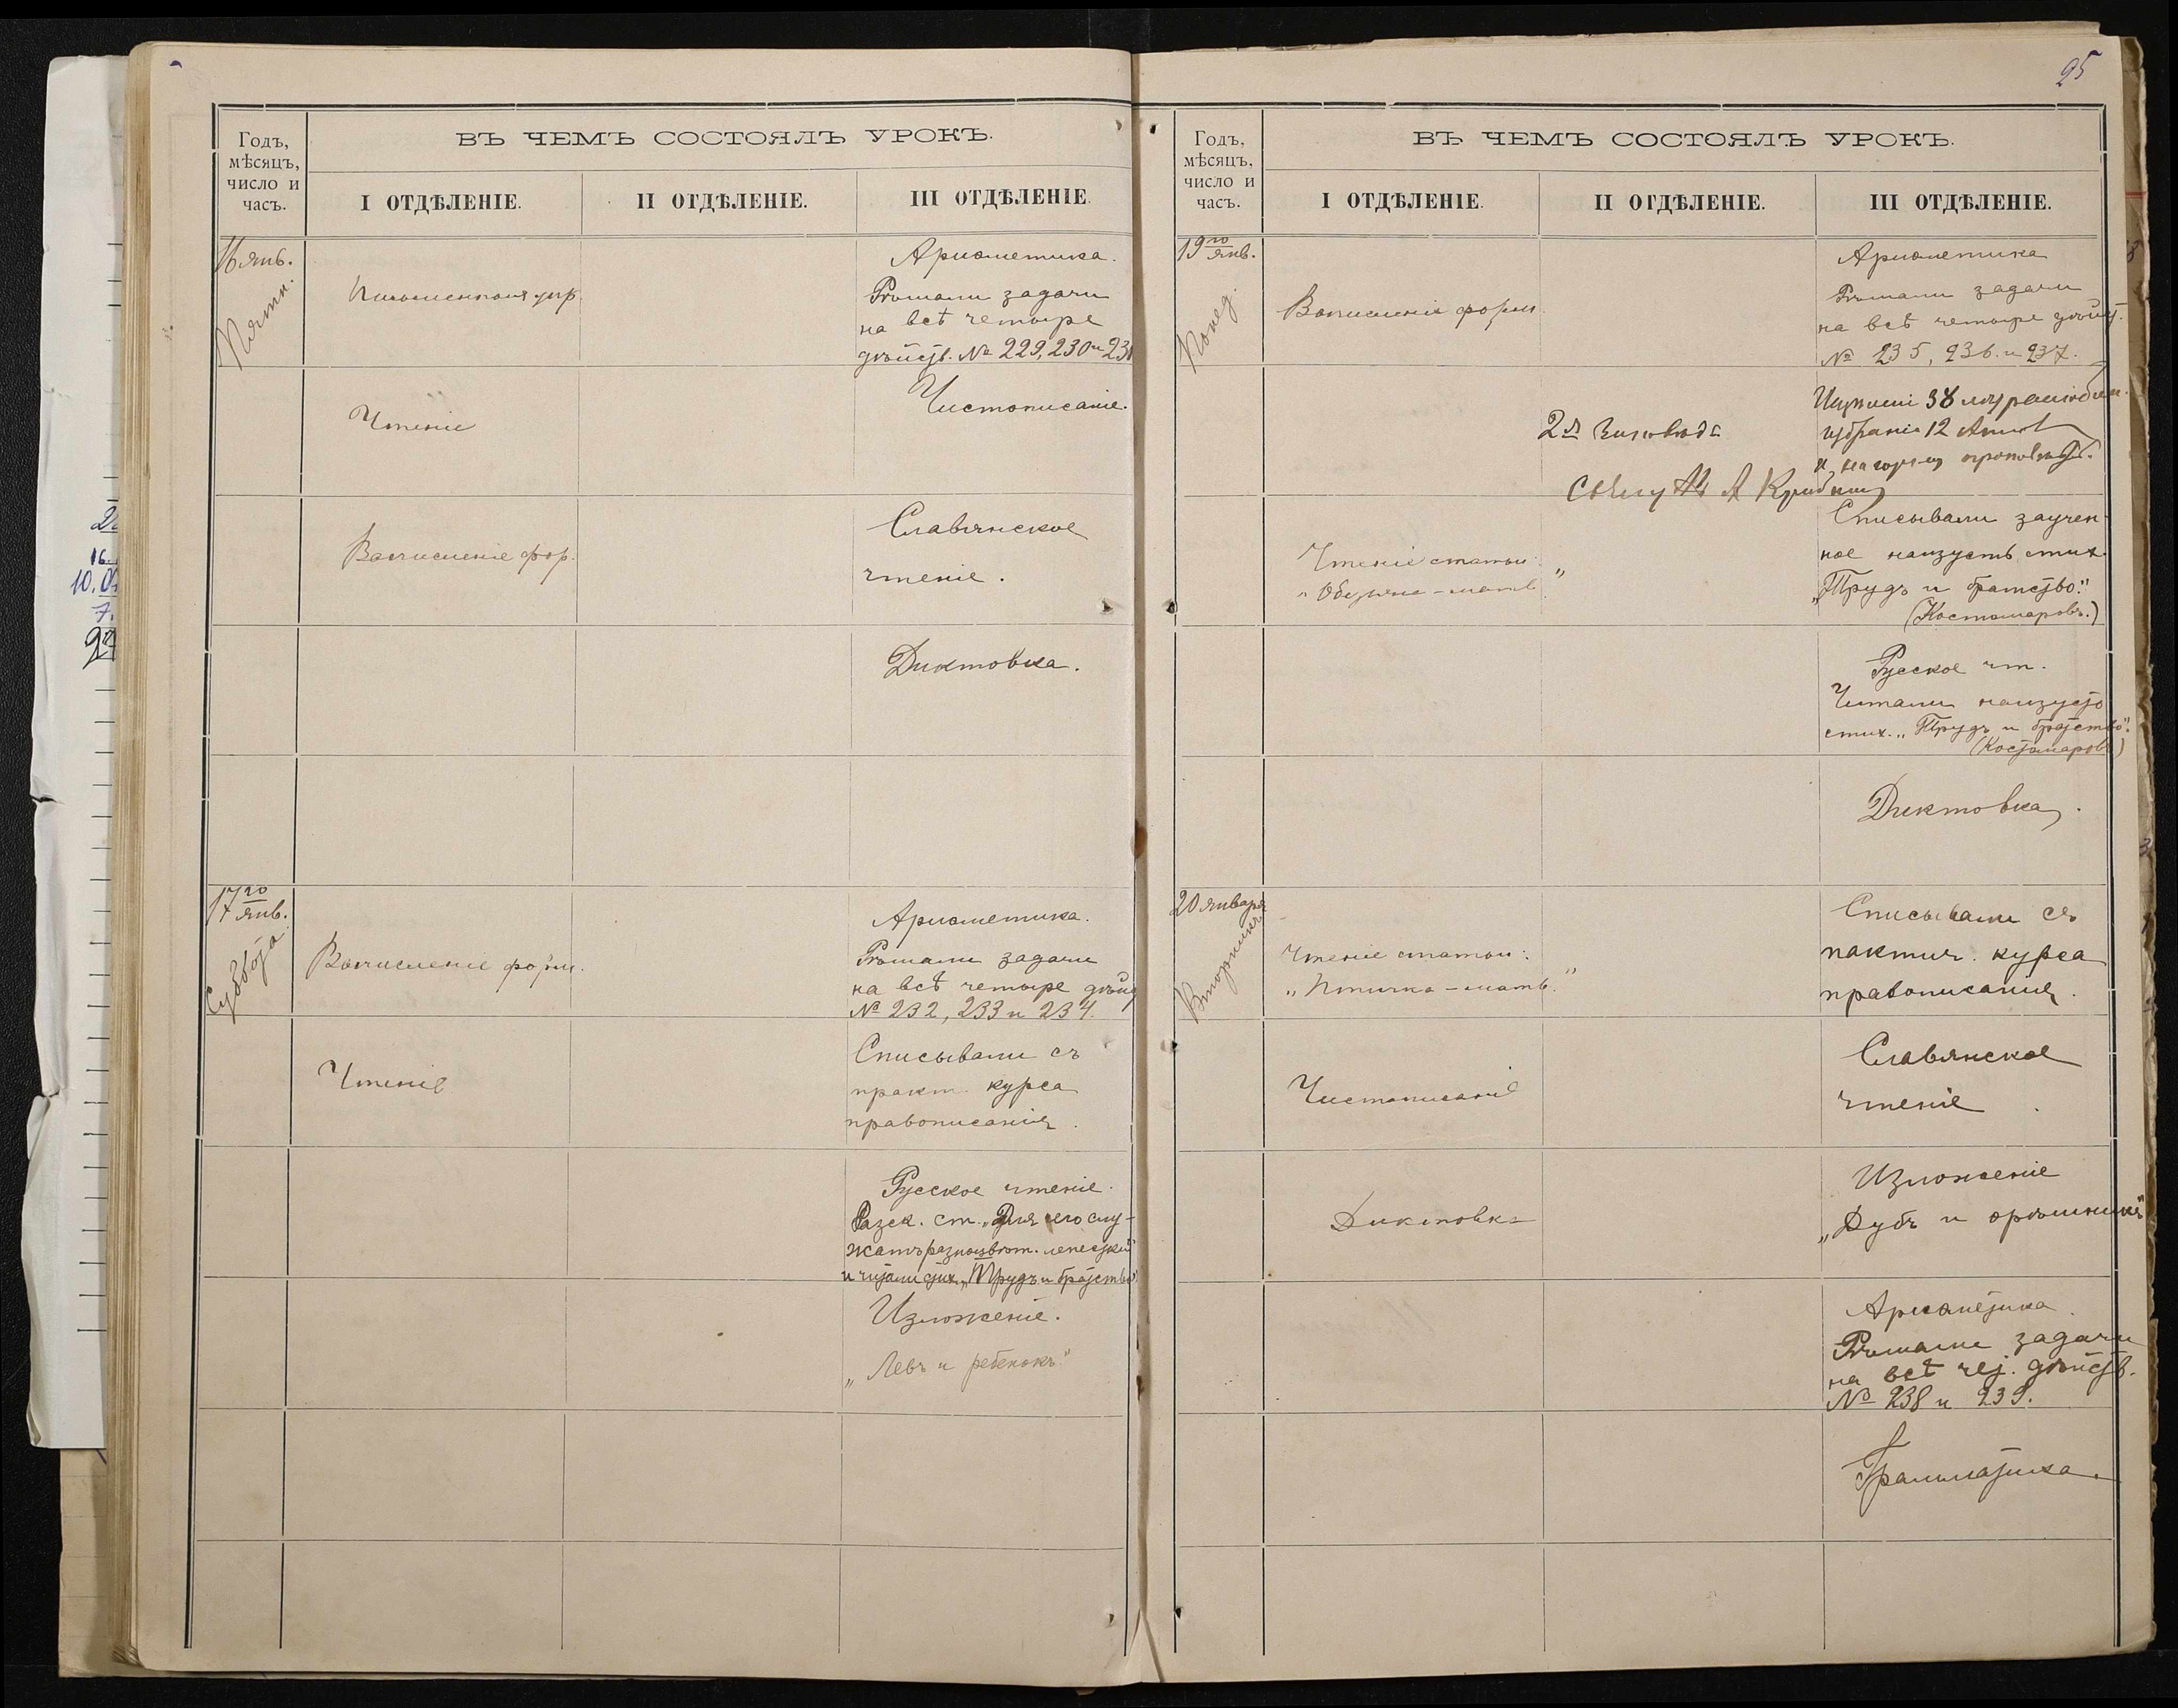 95
Годъ,
мѣсяцъ,
число и
часъ.
ВЪ ЧЕМЪ СОСТОЯЛЪ УРОКЪ.
I ОТДѢЛЕНІЕ.
II ОТДѢЛЕНІЕ.
III ОТДѢЛЕНІЕ.
16 янв.
Пятн.
Письменныя упр.
Ариѳметика.
Рѣшали задачи
на всѣ четыре
дѣйств. № 229, 230 и 231
Чтеніе
Чистописаніе.
Вычисленіе фор.
Славянское
чтеніе.
Диктовка.
17го янв.
Суббота
Вычисленіе форм.
Ариѳметика.
Рѣшали задачи
на всѣ четыре дѣйс
№ 232, 233 и 234.
Чтеніе
Списывали съ
практ. курса
правописанія.
Русское чтеніе.
Разск. ст. „Для чего слу-
жатъ разноцвѣт. лепестки"
и читали стих. „Трудъ и братство".
Изложеніе.
„Левъ и ребенокъ."
Годъ,
мѣсяцъ,
число и
часъ.
ВЪ ЧЕМЪ СОСТОЯЛЪ УРОКЪ.
I ОТДѢЛЕНІЕ.
II ОТДѢЛЕНІЕ.
III ОТДѢЛЕНІЕ.
19го янв.
Понед.
Вычисленіе форм
Ариѳметика
Рѣшали задачи
на всѣ четыре дѣйст.
№ 235, 236. и 237.
38
12
Чтеніе статьи:
„Обезьяна - мать"
Списывали заучен-
ное наизусть стих.
„Трудъ и братство."
(Костомаровъ.)
Русское чт.
Читали наизусть
стих. „Трудъ и братство".
(Костомаровъ)
Диктовка.
20 января
Вторникъ
Чтеніе статьи:
„Птичка - мать."
Списывали съ
пактич. курса
правописанія.
Чистописаніе
Славянское
чтеніе.
Диктовка
Изложеніе
„Дубъ и орѣшникъ"
Ариѳметика.
Рѣшали задачи
на всѣ чет. дѣйств.
№ 238 и 239.
Грамматика.